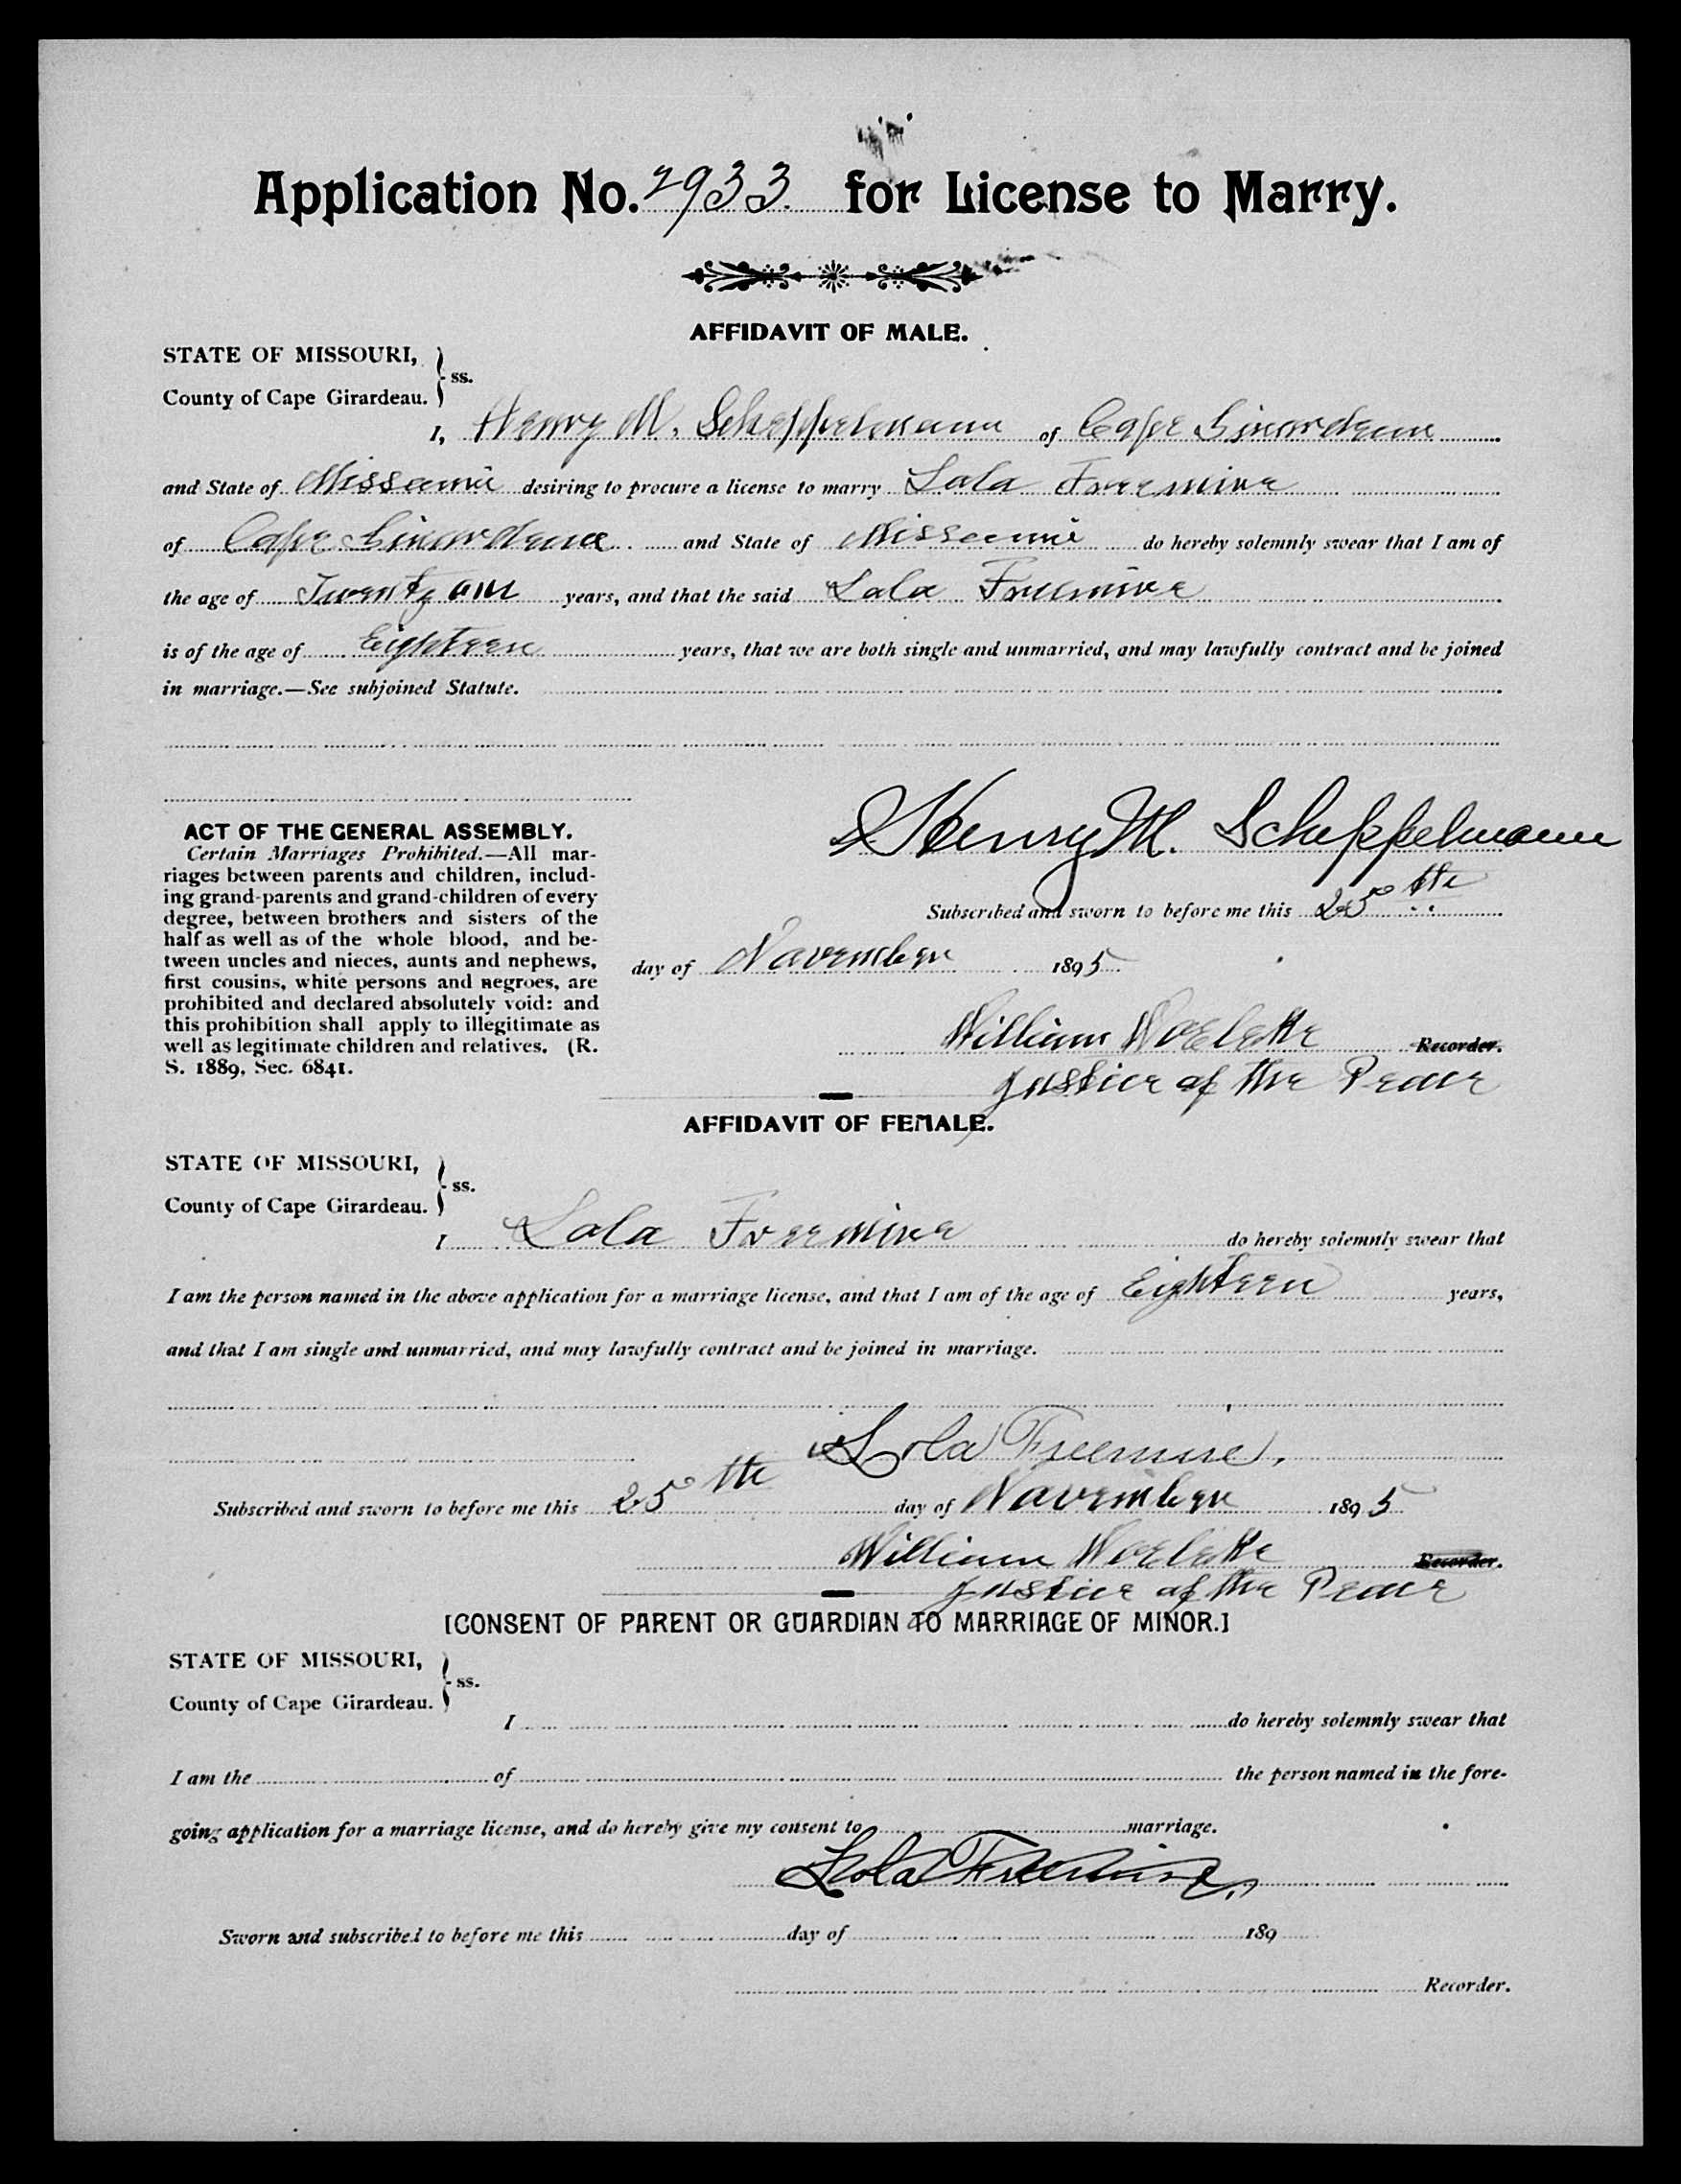 Application No. 2933 for License to Marry.
AFFIDAVIT OF MALE.
STATE OF MISSOURI,
County of Cape Girardeau. } ss.
I, Henry M. Scheppelmann of Cape Girardeau
and State of Missouri desiring to procure a license to marry Lola Freemire
of Cape Girardeau and State of Missouri do hereby solemnly swear that I am of
the age of Twenty one years, and that the said Lola Freemire
is of the age of Eighteen years, that we are both single and unmarried, and may lawfully contract and be joined
in marriage.—See subjoined Statute.
Henry M. Scheppelmann
Subscribed and sworn to before me this 25th
day of November 1895
William Woeleke Recorder.
Justice of the Peace
ACT OF THE GENERAL ASSEMBLY.
Certain Marriages Prohibited.—All mar-
riages between parents and children, includ-
ing grand-parents and grand-children of every
degree, between brothers and sisters of the
half as well as of the whole blood, and be-
tween uncles and nieces, aunts and nephews,
first cousins, white persons and negroes, are
prohibited and declared absolutely void: and
this prohibition shall apply to illegitimate as
well as legitimate children and relatives. (R.
S. 1889, Sec. 6841.
AFFIDAVIT OF FEMALE.
STATE OF MISSOURI,
County of Cape Girardeau. } ss.
I Lola Freemire do hereby solemnly swear that
I am the person named in the above application for a marriage license, and that I am of the age of Eighteen years,
and that I am single and unmarried, and may lawfully contract and be joined in marriage.
Lola Freemire.
Subscribed and sworn to before me this 25th day of November 1895
William Woeleke Recorder.
Justice of the Peace
[CONSENT OF PARENT OR GUARDIAN TO MARRIAGE OF MINOR.]
STATE OF MISSOURI,
County of Cape Girardeau. } ss.
I do hereby solemnly swear that
I am the of the person named in the fore-
going application for a marriage license, and do hereby give my consent to marriage.
Lola Freemire.
Sworn and subscribed to before me this day of 189
Recorder.